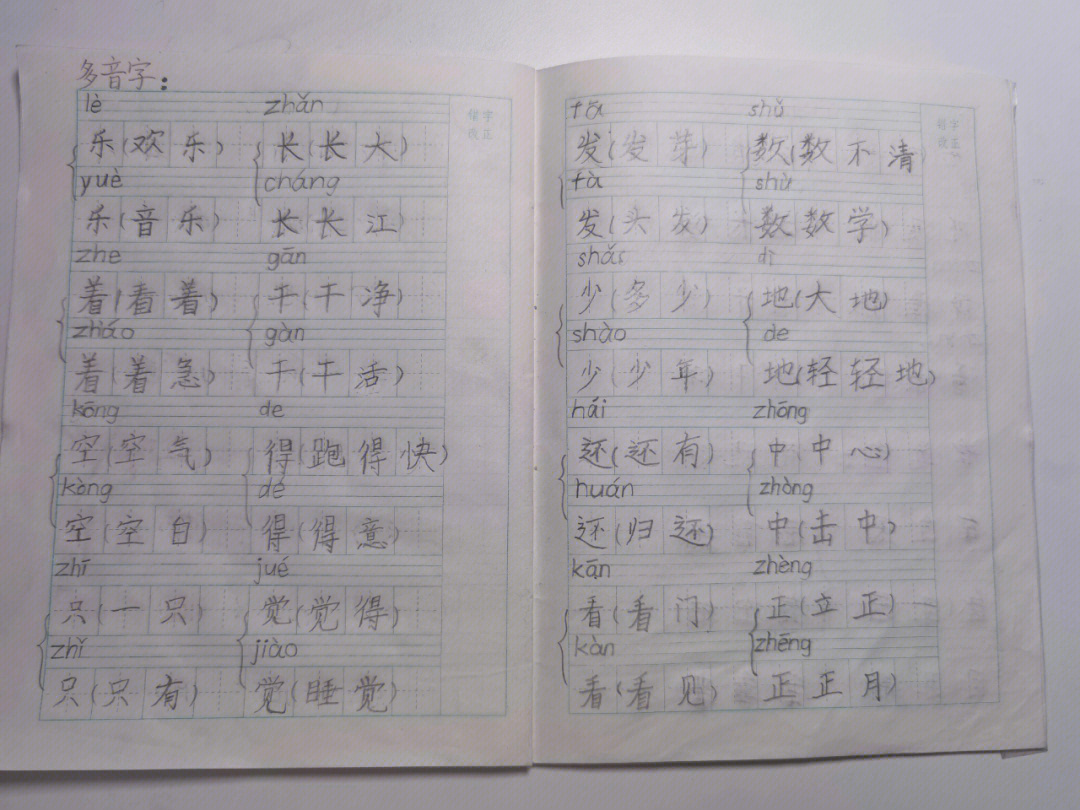 多音字：
lè zhǎn
乐(欢乐) 长(长大)
yuè cháng
乐(音乐) 长(长江)
zhe gān
着(看着) 干(干净)
zháo gàn
着(着急) 干(干活)
kōng de
空(空气) 得(跑得快)
kòng dé
空(空白) 得(得意)
zhī jué
只(一只) 觉(觉得)
zhǐ jiào
只(只有) 觉(睡觉)
错字
改正
fā shǔ
发(发芽) 数(数不清)
fà shù
发(头发) 数数学)
shǎo dì
少(多少) 地(大地)
shào de
少(少年) 地(轻轻地)
hái zhōng
还(还有) 中(中心)
huán zhòng
还(归还) 中(击中)
kān zhèng
看(看门) 正(立正)
kàn zhēng
看(看见) 正正月)
错字
改正